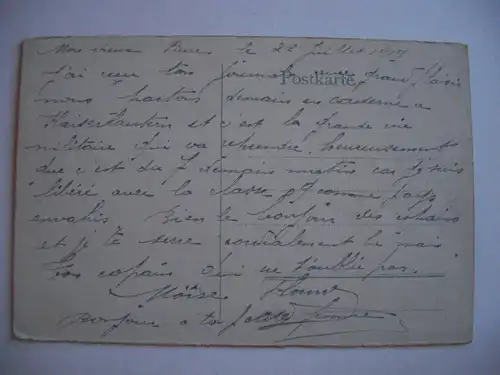 Mon vieux le 22 Juillet 1919
J'ai reçu ton journal avec grand plaisir
Postkarte
nous partons demain en caserne a
Kaiserslautern et c'est la grande vie
militaire qui va reprendre. heureusement
que c'est du 7 demain matin car je suis
libéré avec la classe 
envahis Bien le bonjour des copains
et je te serre cordialement la main
Ton copain qui ne t'oublie pas.
Moïse
Bonjour a ta petite femme